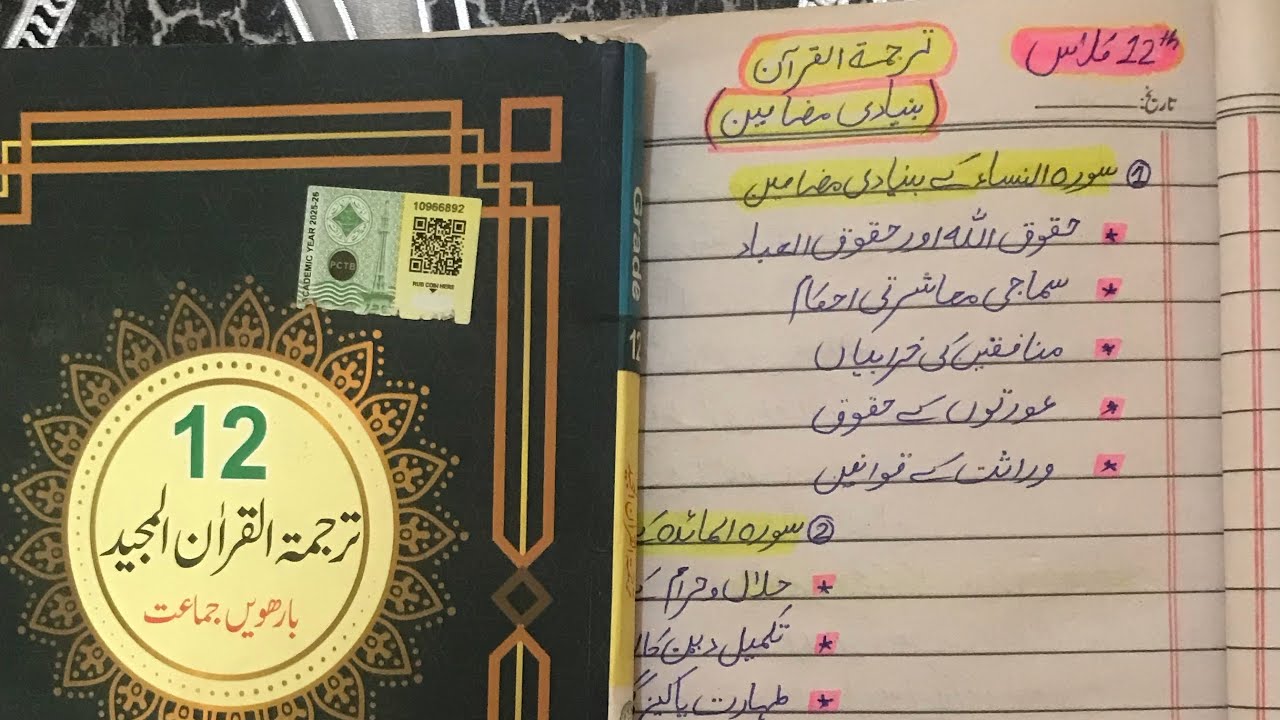 ACADEMIC YEAR 2025-26
PCTB
10966892
Grade 12
12
ترجمۃ القرآن المجید
بارھویں جماعت
12th کلاس
ترجمۃ القرآن
(بنیادی مضامین)
تاریخ:
① سورہ النساء کے بنیادی مضامین
* حقوق اللہ اور حقوق العباد
* سماجی معاشرتی احکام
* منافقین کی خرابیاں
* عورتوں کے حقوق
* وراثت کے قوانین
② سورہ المائدہ
* حلال و حرام
* تکمیل دین کا
* طہارت پاکیزگی